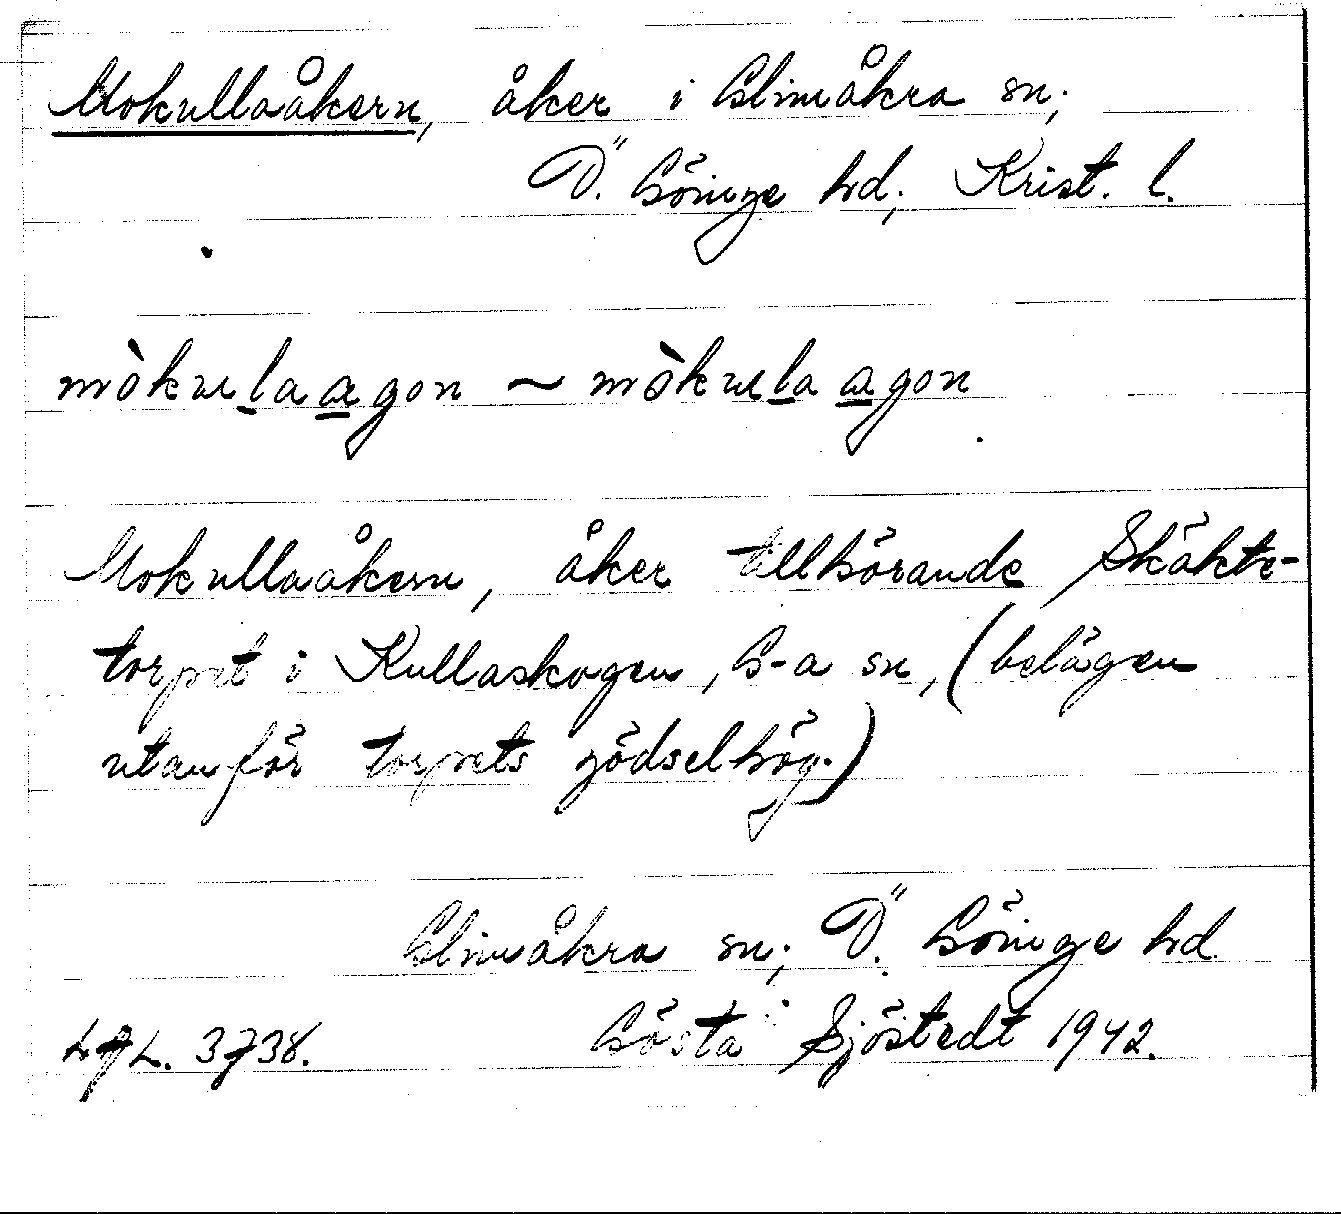 Mokullaåkern, åker i Glimåkra sn;
Ö. Göinge hd; Krist. l.
mòkulaagon ~ mòkulaagon
Mokullaåkern, åker tillhörande Skäkte-
torpet i Kullaskogen, G-a sn, (belägen
utanför torpets gödselhög.)
Glimåkra sn; Ö. Göinge hd
3738. Gösta Sjöstedt 1942.